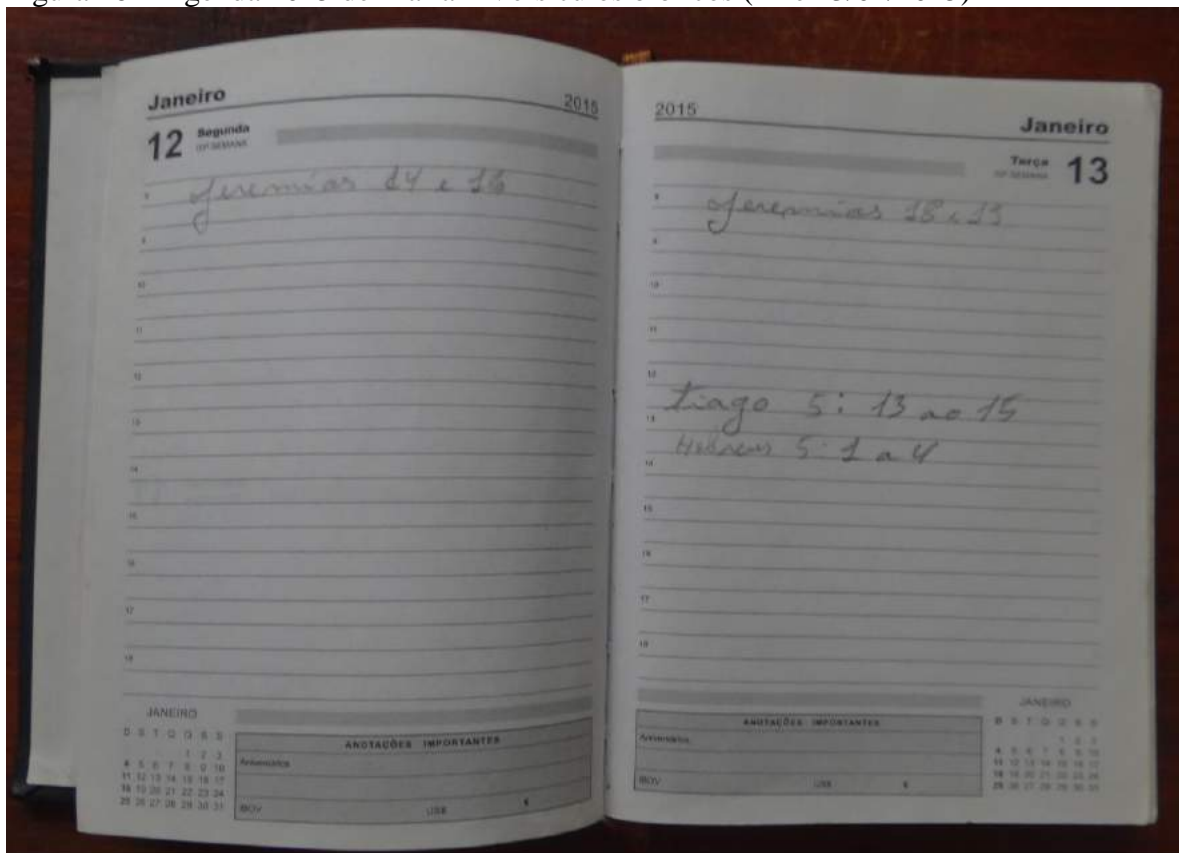 Janeiro 2015
12 Segunda
Jeremias 14 e
8
9
10
11
12
13
14
15
16
17
18
JANEIRO
D S T Q Q S S
1 2 3
4 5 6 7 8 9 10
11 12 13 14 15 16 17
18 19 20 21 22 23 24
25 26 27 28 29 30 31
ANOTAÇÕES IMPORTANTES
Aniversários
IBOV US$ €
2015 Janeiro
Terça 13
8
Jeremias 18 e
9
10
11
12
tiago 5: 13 ao 15
13
Hebreus 5: 1 a 4
14
15
16
17
18
ANOTAÇÕES IMPORTANTES
Aniversários
IBOV US$ €
JANEIRO
D S T Q Q S S
1 2 3
4 5 6 7 8 9 10
11 12 13 14 15 16 17
18 19 20 21 22 23 24
25 26 27 28 29 30 31